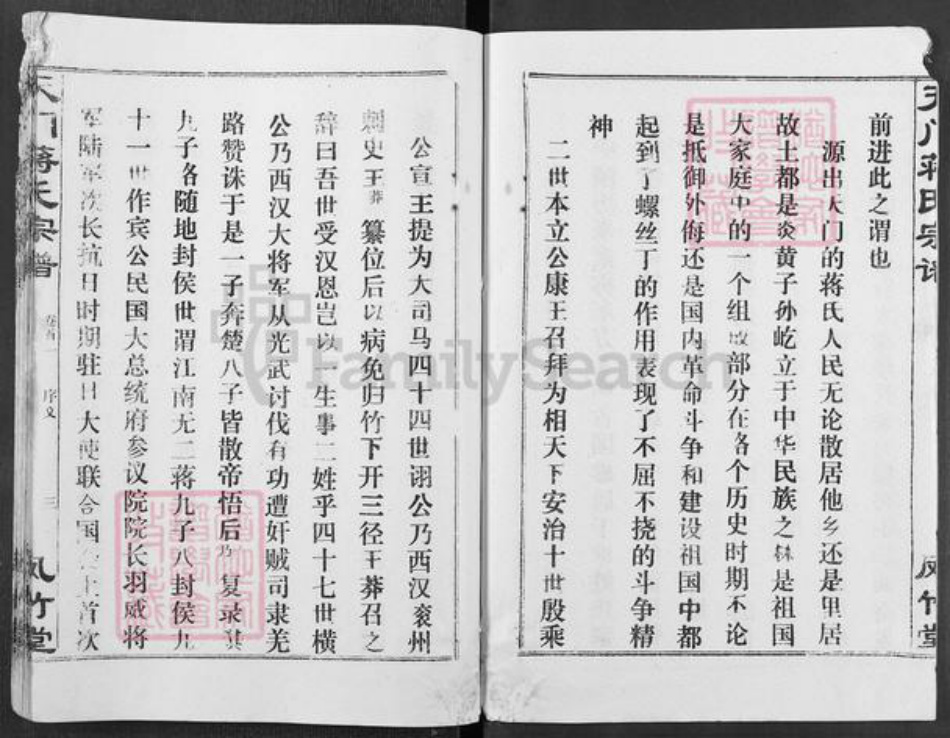 前进此之谓也
源出天门的蒋氏人民无论散居他乡还是里居
故土都是炎黄子孙屹立于中华民族之林是祖国
大家庭中的一个组成部分在各个历史时期不论
是抵御外侮还是国内革命斗争和建设祖国中都
起到了螺丝丁的作用表现了不屈不挠的斗争精
神
二世本立公康王召拜为相天下安治十世殷乘
公宣王提为大司马四十四世诩公乃西汉衮州
刺史王莽篡位后以病免归竹下开三径王莽召之
辞曰吾世受汉恩岂以一生事二姓乎四十七世横
公乃西汉大将军从光武讨伐有功遭奸贼司隶羌
路赞诛于是一子奔楚八子皆散帝悟后乃复录其
九子各随地封侯世谓江南无二蒋九子八封侯九
十一世作宾公民国大总统府参议院院长羽威将
军陆军次长抗日时期驻日大使联合国首次
天门蒋氏宗谱
卷首一
序文
三
凤竹堂
天门蒋氏宗谱
凤竹堂
FamilySearch